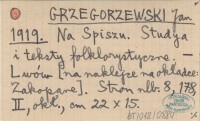 GRZEGORZEWSKI Jan
1919. Na Spiszu. Studya
i teksty folklorystyczne —
Lwów [na naklejce na okładce:
Zakopane]. Stron nlb. 8, 178,
II, okł., cm 22 x 15.